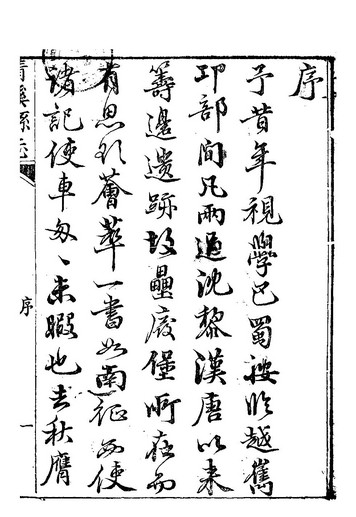 序
予昔年視學巴蜀按臨越嶲
邛部間凡兩過沈黎漢唐以来
籌邊遺跡故壘廢堡所在而
有思欲薈萃一書如南征西使
諸記使車匆々未暇也去秋膺
清溪縣志
序
一